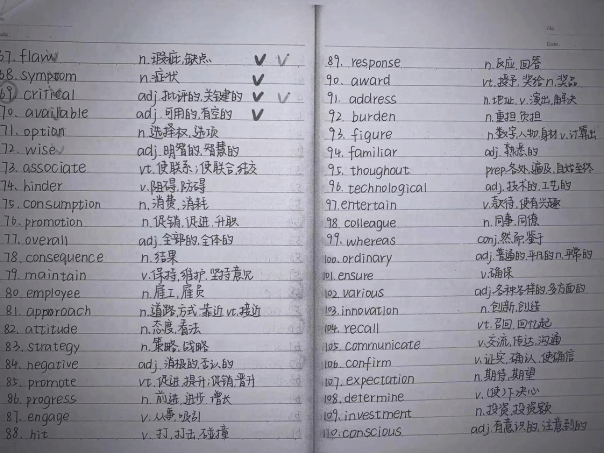 67. flaw n. 瑕疵,缺点 ✓ ✓
68. symptom n. 症状 ✓
69. critical adj. 批评的,关键的 ✓ ✓
70. available adj. 可用的,有空的 ✓
71. option n. 选择权,选项
72. wise adj. 明智的,智慧的
73. associate vt. 使联系;使联合,结交
74. hinder v. 阻碍,防碍
75. consumption n. 消费,消耗
76. promotion n. 促销,促进,升职
77. overall adj. 全部的,全体的
78. consequence n. 结果
79. maintain v. 保持,维护,坚持意见
80. employee n. 雇工,雇员
81. approach n. 道路,方式,靠近 vt. 接近
82. attitude n. 态度,看法
83. strategy n. 策略,战略
84. negative adj. 消极的,否认的
85. promote vt. 促进,提升;促销,晋升
86. progress n. 前进,进步,增长
87. engage v. 从事,吸引
88. hit v. 打,打击,碰撞
89. response n. 反应,回答
90. award vt. 授予,奖给 n. 奖品
91. address n. 地址, v. 演出,解决
92. burden n. 重担,负担
93. figure n. 数字,人物,身材 v. 计算出
94. familiar adj. 熟悉的
95. thoughout prep. 各处,遍及,自始至终
96. technological adj. 技术的,工艺的
97. entertain v. 款待,使有兴趣
98. colleague n. 同事,同僚
99. whereas conj. 然而,鉴于
100. ordinary adj. 普通的,平凡的 n. 平常的
101. ensure v. 确保
102. various adj. 各种各样的,多方面的
103. innovation n. 创新,创造
104. recall vt. 召回,回忆起
105. communicate v. 交流,传达,沟通
106. confirm v. 证实,确认,使确信
107. expectation n. 期待,期望
108. determine v. (使)下决心
109. investment n. 投资,投资额
110. conscious adj. 有意识的,注意到的